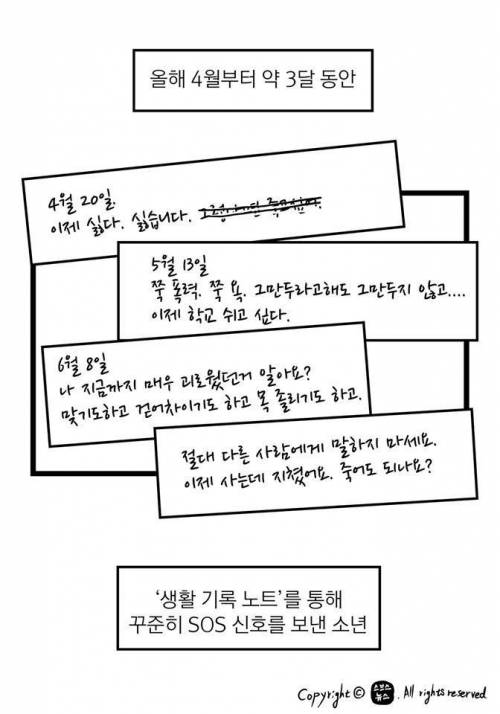 올해 4월부터 약 3달 동안
4월 20일.
이제 싫다. 싫습니다.
5월 13일
쭉 폭력. 쭉 욕. 그만두라고해도 그만두지 않고....
이제 학교 쉬고 싶다.
6월 8일
나 지금까지 매우 괴로웠던거 알아요?
맞기도하고 걷어차이기도 하고 목 졸리기도 하고.
절대 다른 사람에게 말하지 마세요.
이제 사는데 지쳤어요. 죽어도 되나요?
‘생활 기록 노트’를 통해
꾸준히 SOS 신호를 보낸 소년
Copyright © 스브스뉴스. All rights reserved